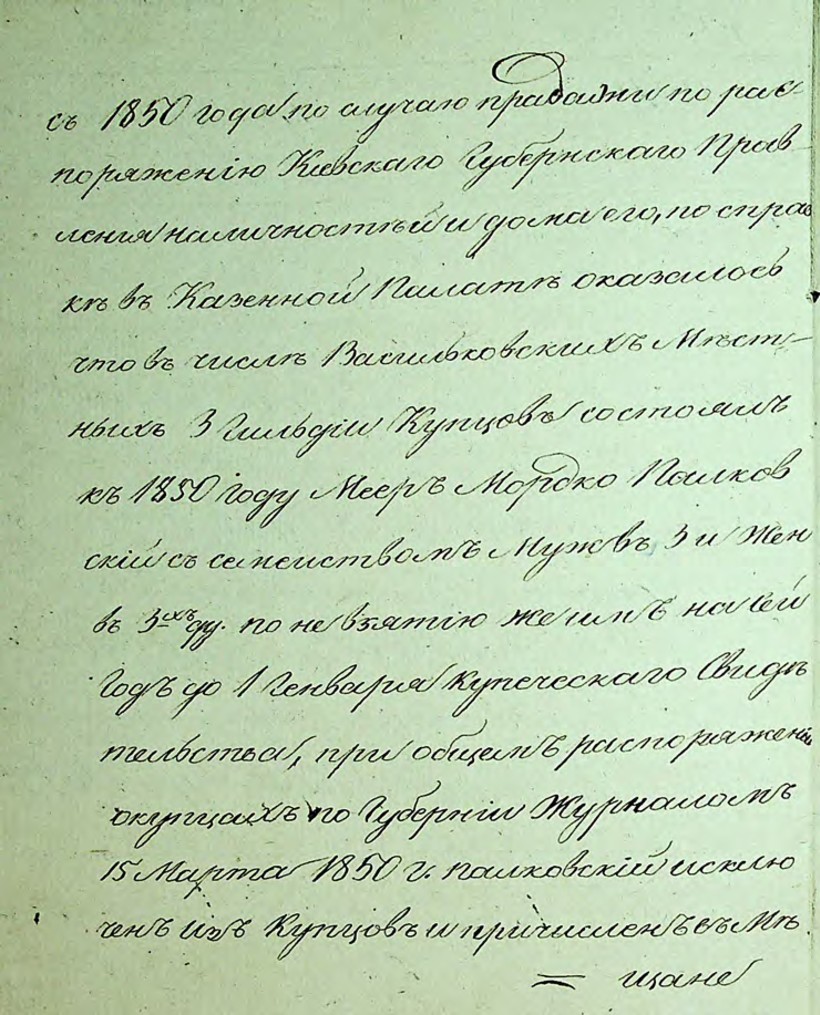 съ 1850 года по случаю продажи по рас-
поряженію Киевскаго Губернскаго Прав-
ленія наличностей и дома его, по справ
кѣ въ Казенной Палатѣ оказалось
что въ числѣ Васильковскихъ Мѣст-
ныхъ 3 Гильдіи Купцовъ состоялъ
къ 1850 году Мееръ Мордко Палков
скій съ семействомъ Муж въ 3 и Жен
въ 3хъ ду. по невзятію же имъ на сей
Годъ до 1 Генваря купеческаго Свидѣ
тельства, при общемъ распоряженіи
о купцахъ по Губерніи Журналомъ
15 Марта 1850 г. Палковскій исклю
ченъ изъ Купцовъ и причисленъ въ Мѣ
= щане